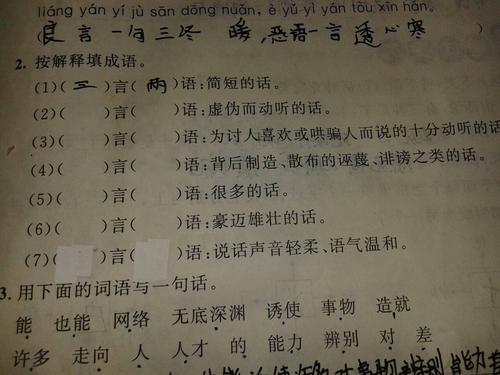 liáng yán yí jù sān dōng nuǎn, è yǔ yì yán tòu xīn hán.
(良言一句三冬 暖,恶语一言透心寒
2. 按解释填成语。
(1)(三)言(两)语:简短的话。
(2)( )言( )语:虚伪而动听的话。
(3)( )言( )语:为讨人喜欢或哄骗人而说的十分动听的话
(4)( )言( )语:背后制造、散布的诬蔑、诽谤之类的话。
(5)( )言( )语:很多的话。
(6)( )言( )语:豪迈雄壮的话。
(7)( )言( )语:说话声音轻柔、语气温和。
3. 用下面的词语写一句话。
能 也能 网络 无底深渊 诱使 事物 造就
许多 走向 人 人才 的 能力 辨别 对 差